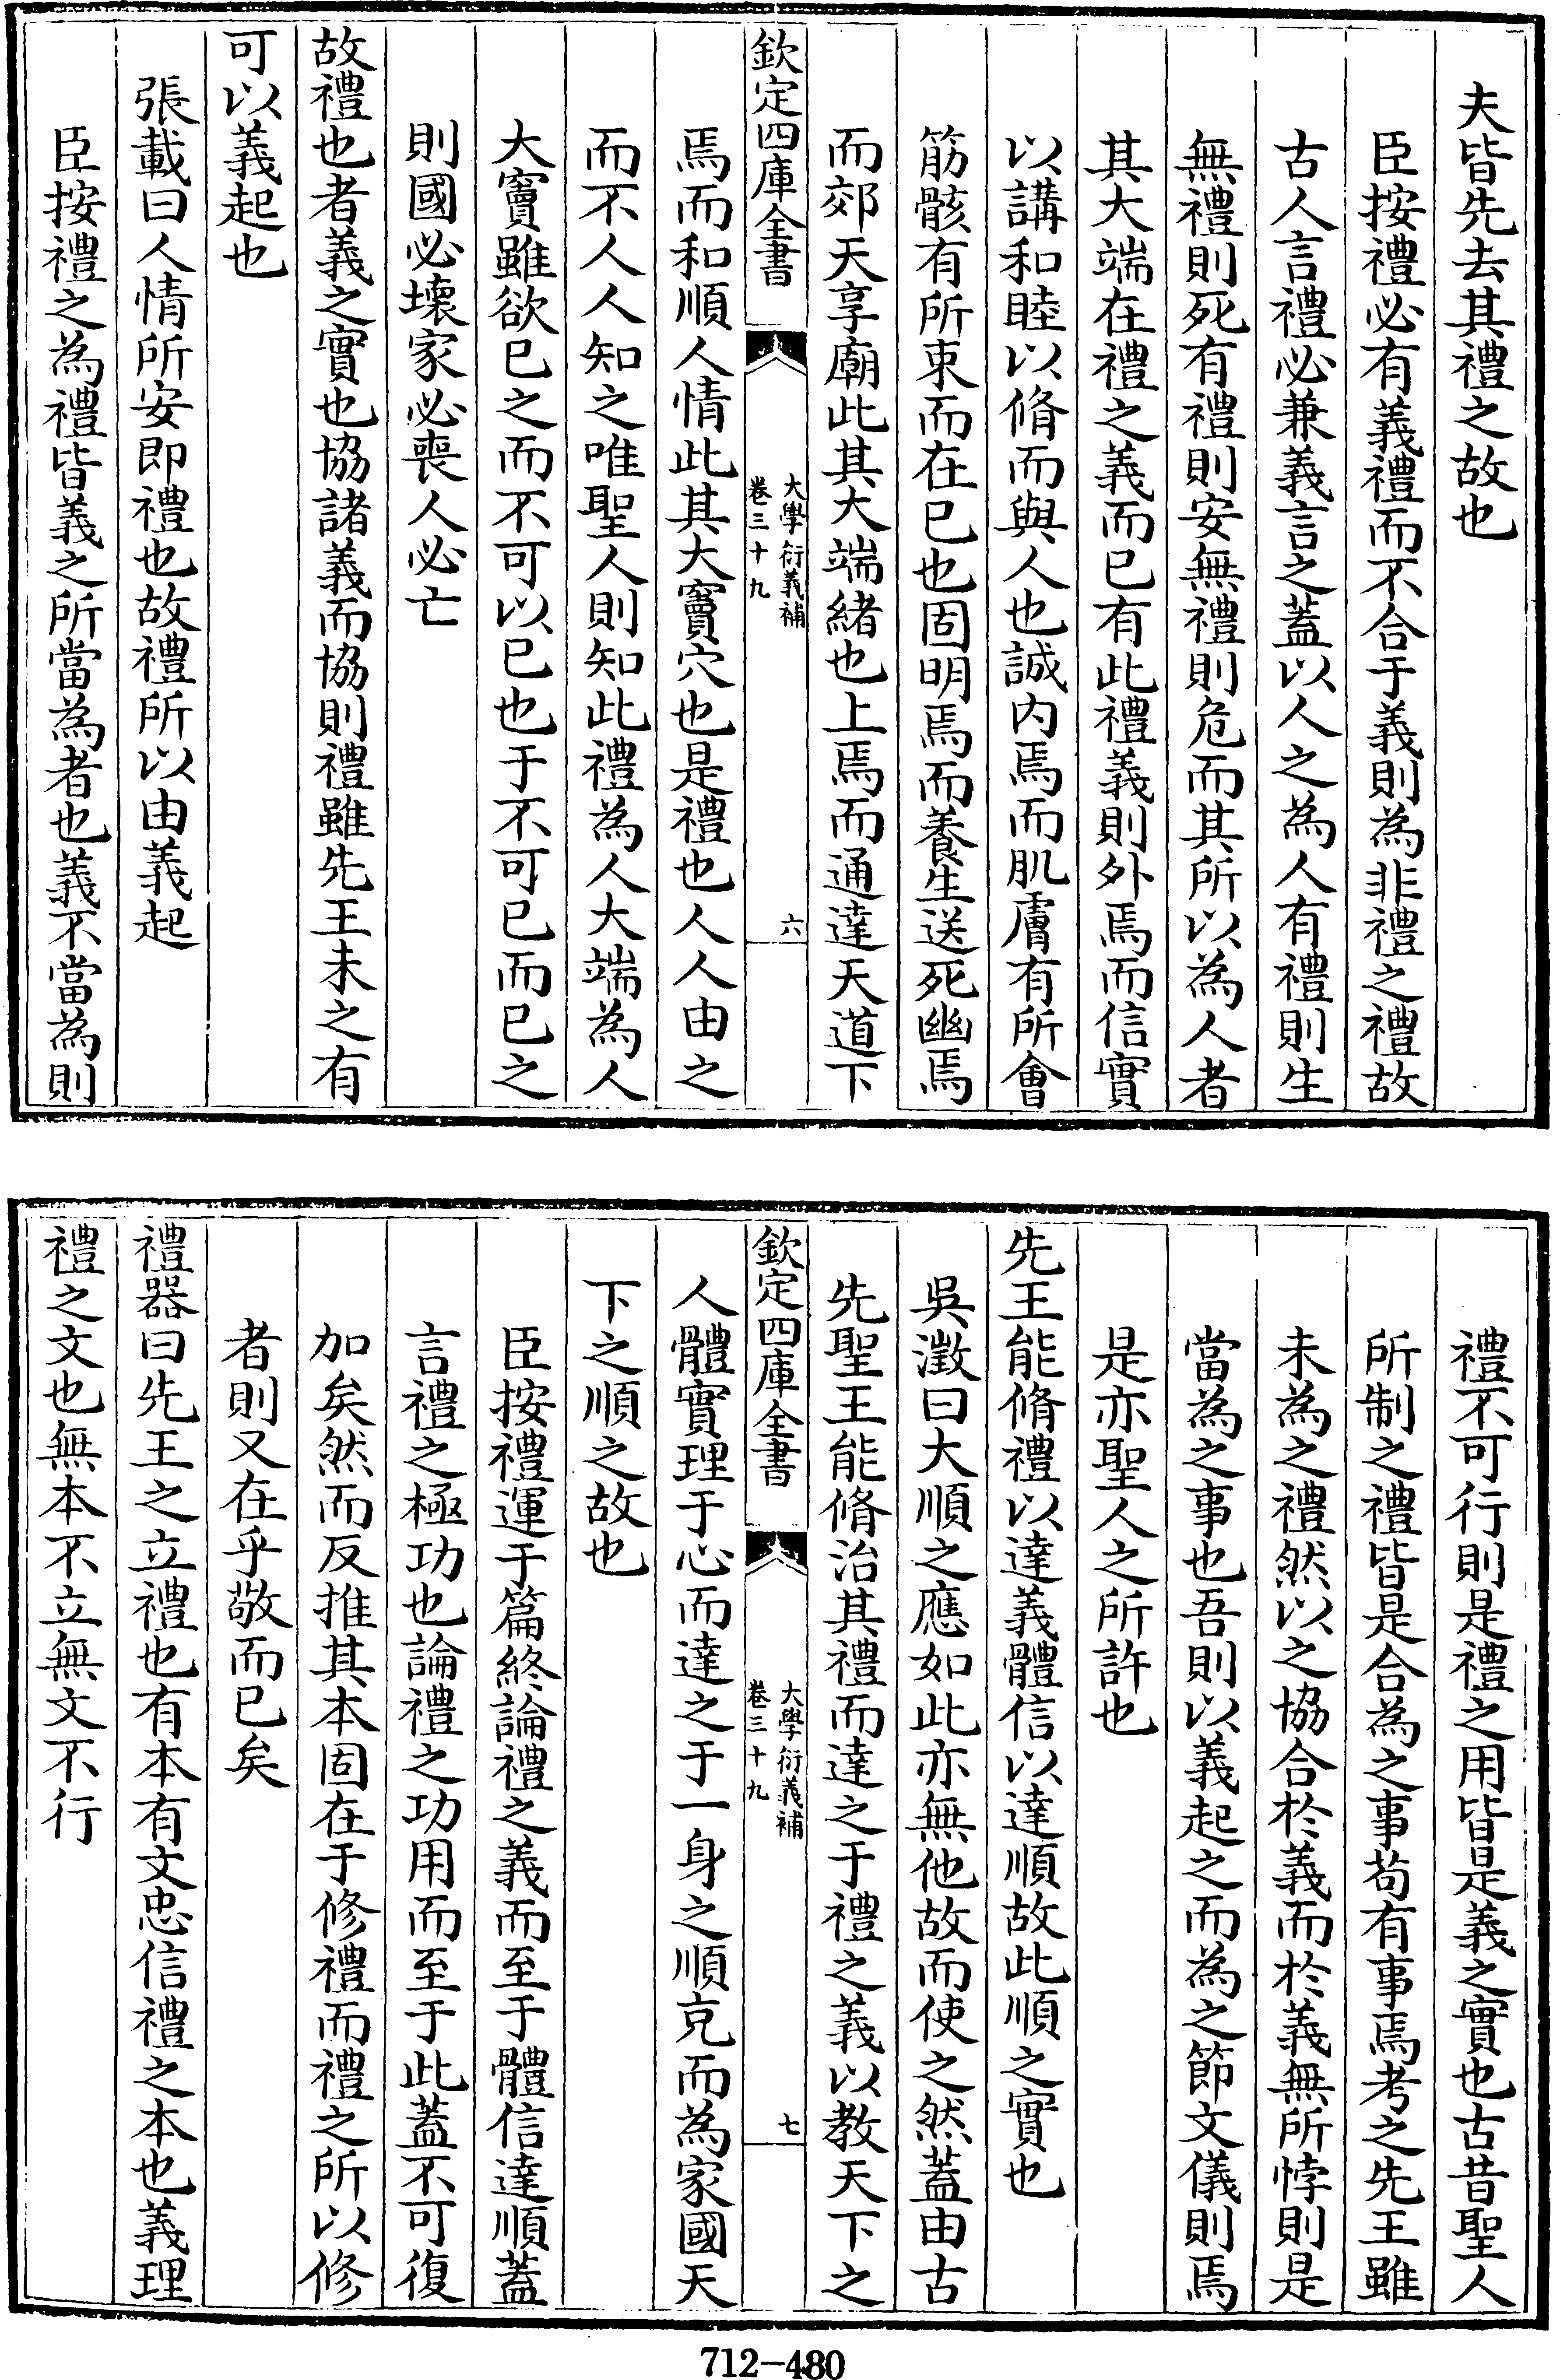 夫皆先去其禮之故也
臣按禮必有義禮而不合于義則為非禮之禮故
古人言禮必兼義言之蓋以人之為人有禮則生
無禮則死有禮則安無禮則危而其所以為人者
其大端在禮之義而已有此禮義則外焉而信實
以講和睦以脩而與人也誠内焉而肌膚有所會
筋骸有所束而在已也固明焉而養生送死幽焉
而郊天享廟此其大端緒也上焉而通達天道下
欽定四庫全書
大學衍義補
卷三十九
六
焉而和順人情此其大竇穴也是禮也人人由之
而不人人知之唯聖人則知此禮為人大端為人
大竇雖欲已之而不可以已也于不可已而已之
則國必壞家必喪人必亡
故禮也者義之實也協諸義而協則禮雖先王未之有
可以義起也
張載曰人情所安即禮也故禮所以由義起
臣按禮之為禮皆義之所當為者也義不當為則
禮不可行則是禮之用皆是義之實也古昔聖人
所制之禮皆是合為之事茍有事焉考之先王雖
未為之禮然以之協合於義而於義無所悖則是
當為之事也吾則以義起之而為之節文儀則焉
是亦聖人之所許也
先王能脩禮以達義體信以達順故此順之實也
吳澂曰大順之應如此亦無他故而使之然蓋由古
先聖王能脩治其禮而達之于禮之義以教天下之
欽定四庫全書
大學衍義補
卷三十九
七
人體實理于心而達之于一身之順克而為家國天
下之順之故也
臣按禮運于篇終論禮之義而至于體信達順蓋
言禮之極功也論禮之功用而至于此蓋不可復
加矣然而反推其本固在于修禮而禮之所以修
者則又在乎敬而已矣
禮器曰先王之立禮也有本有文忠信禮之本也義理
禮之文也無本不立無文不行
712-480